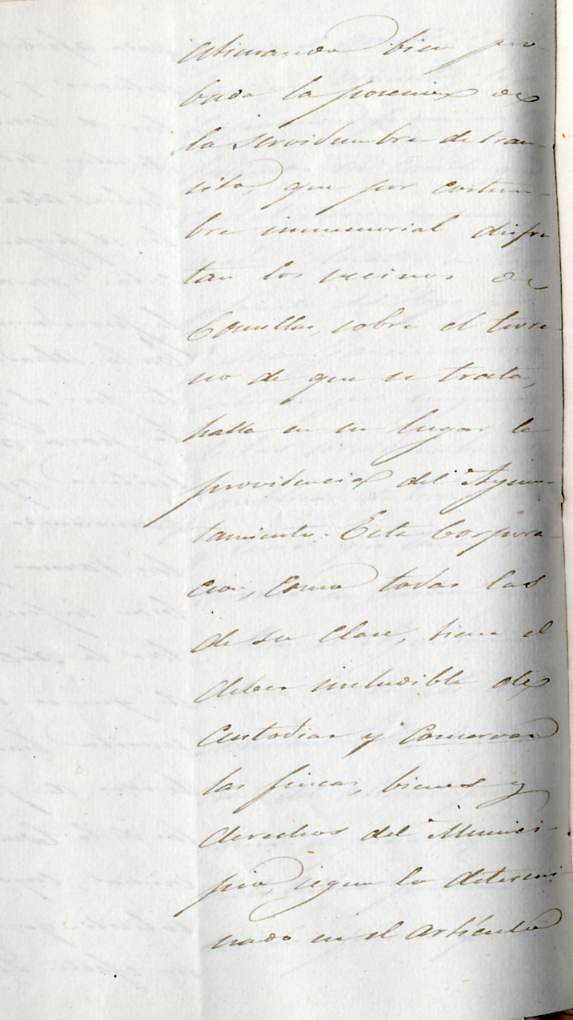 estimando bien pro-
bada la posesion de
la servidumbre de tran-
sito, que por costum-
bre inmemorial disfru
tan los vecinos de
Comillas, sobre el terre-
no de que se trata,
halla en su lugar la
providencia del Ayun-
tamiento. Esta Corpora-
cion, como todas las
de su clase, tiene el
deber ineludible de
custodiar y conservar
las fincas, bienes y
derechos del Munici-
pio, segun lo determi
nado en el artículo